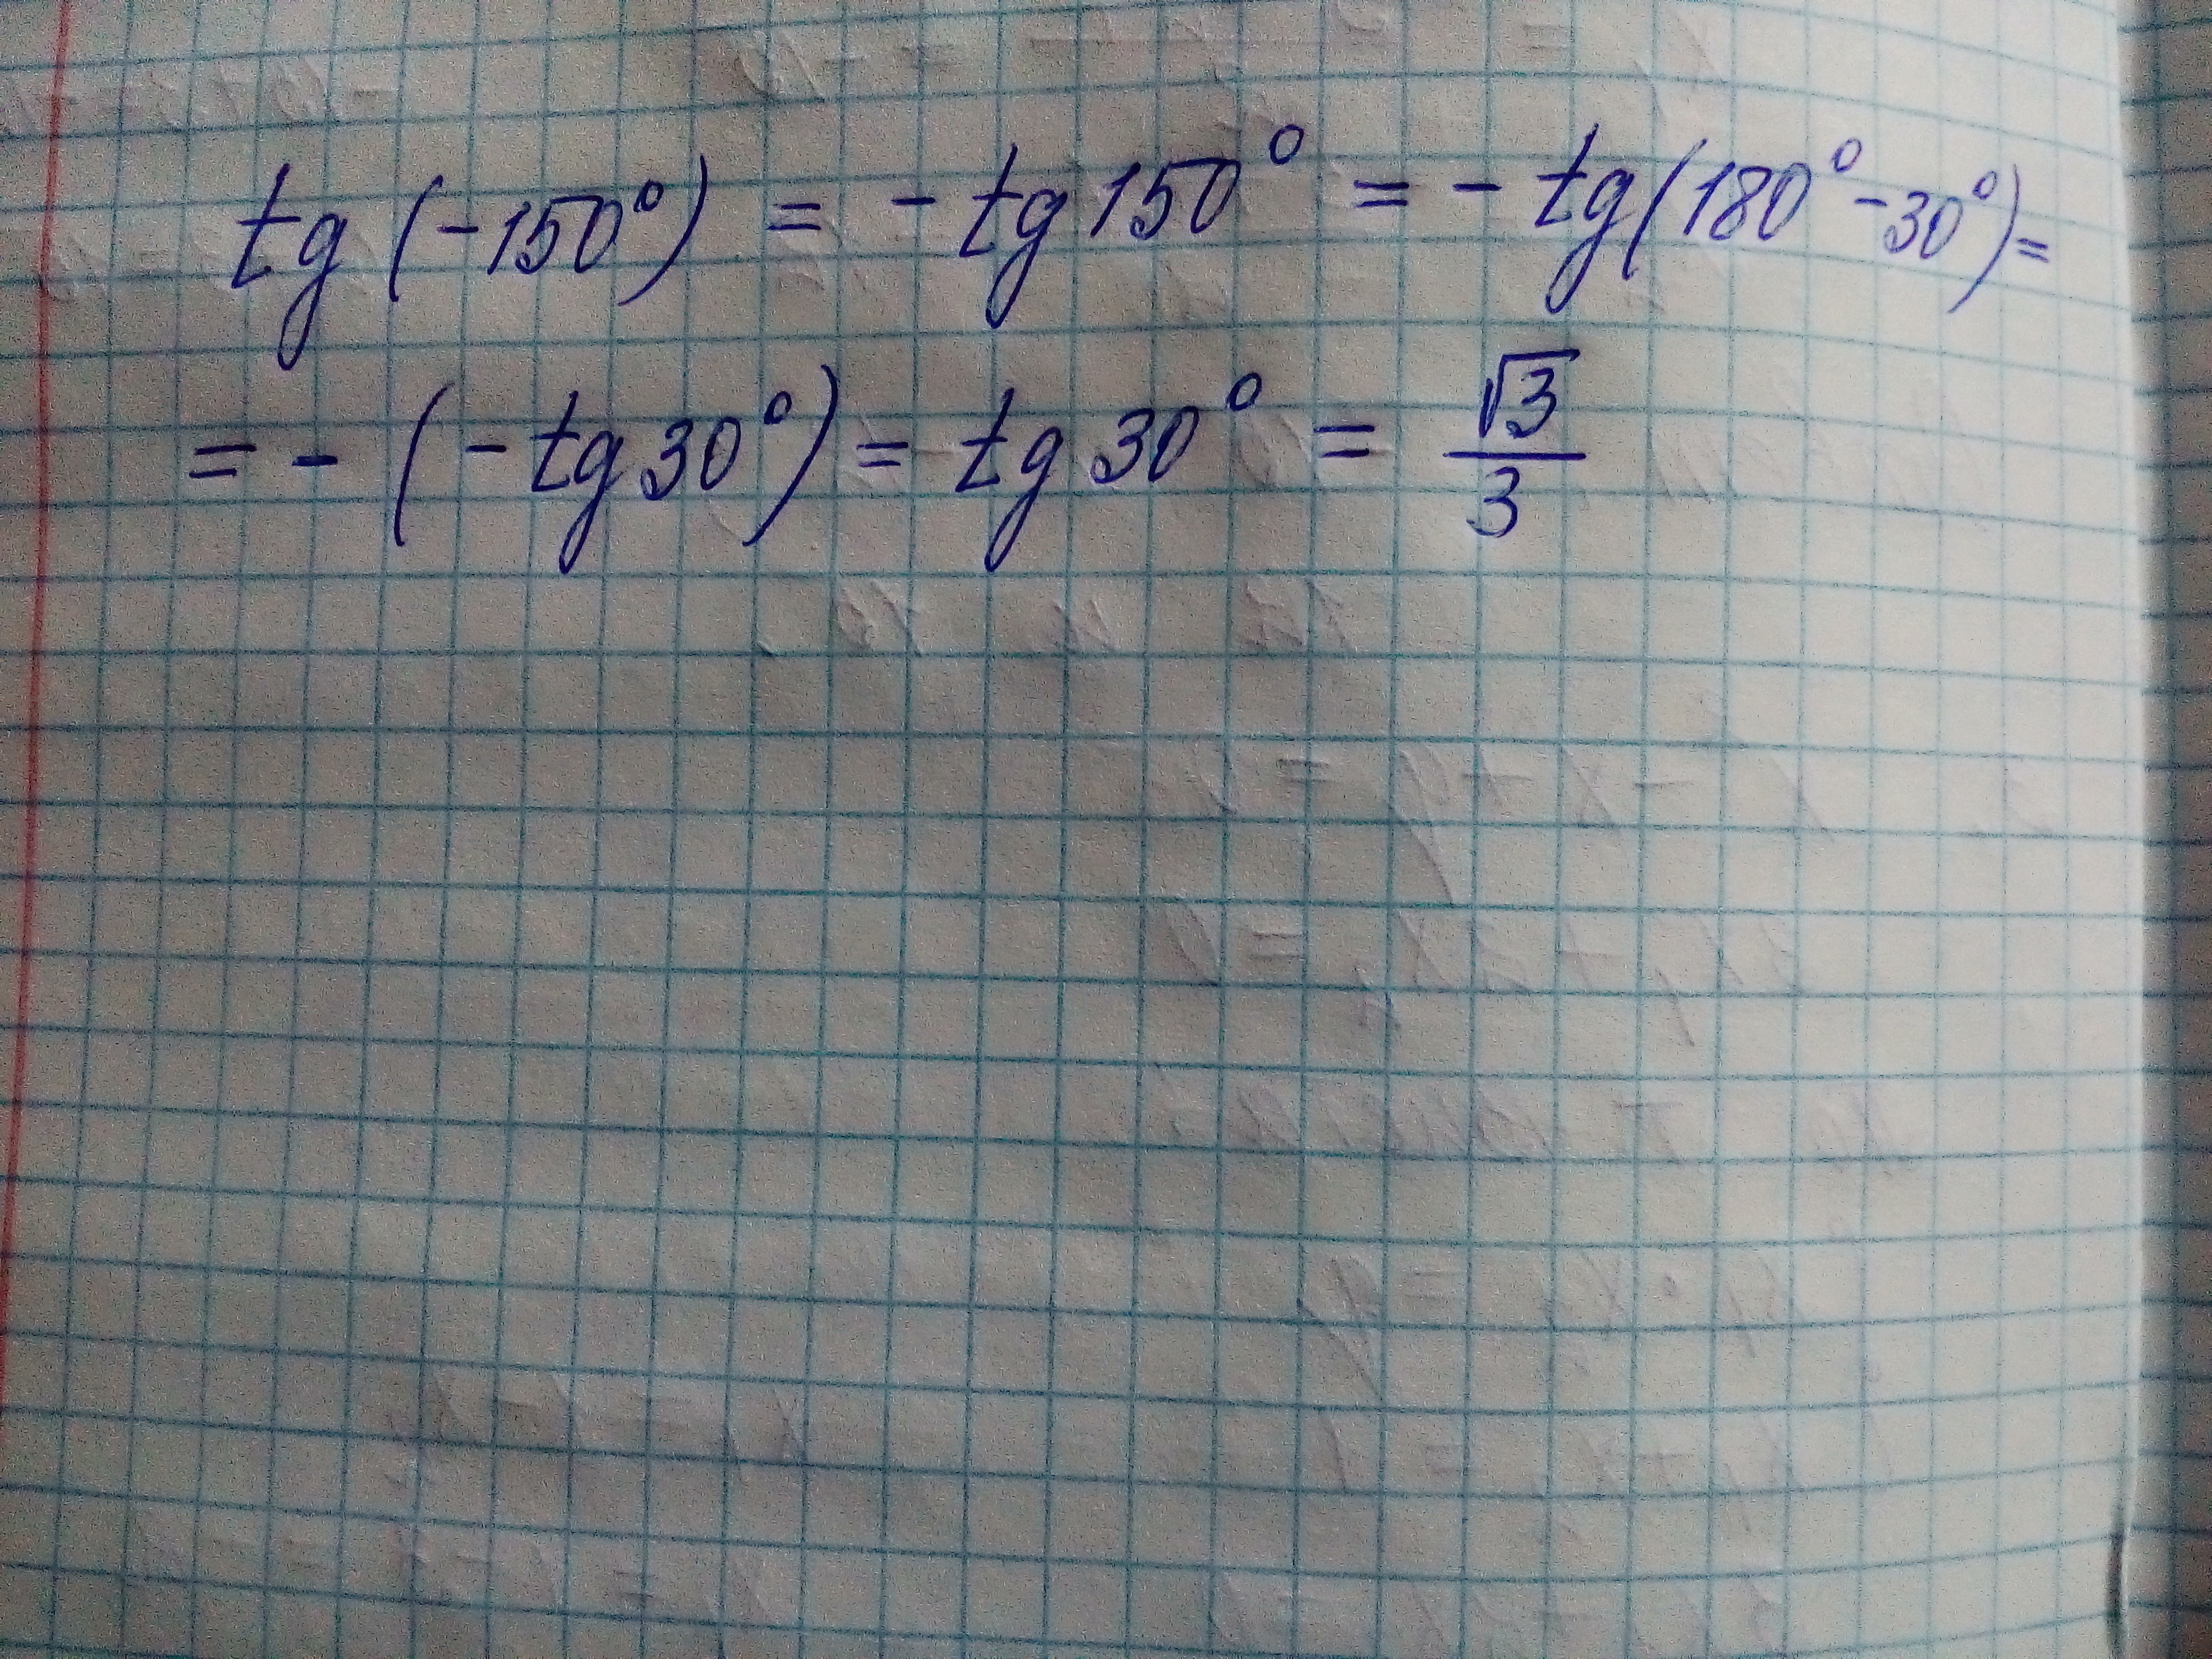 tg (-150°) = - tg 150° = - tg(180° - 30°) =
= - (- tg 30°) = tg 30° = √3/3